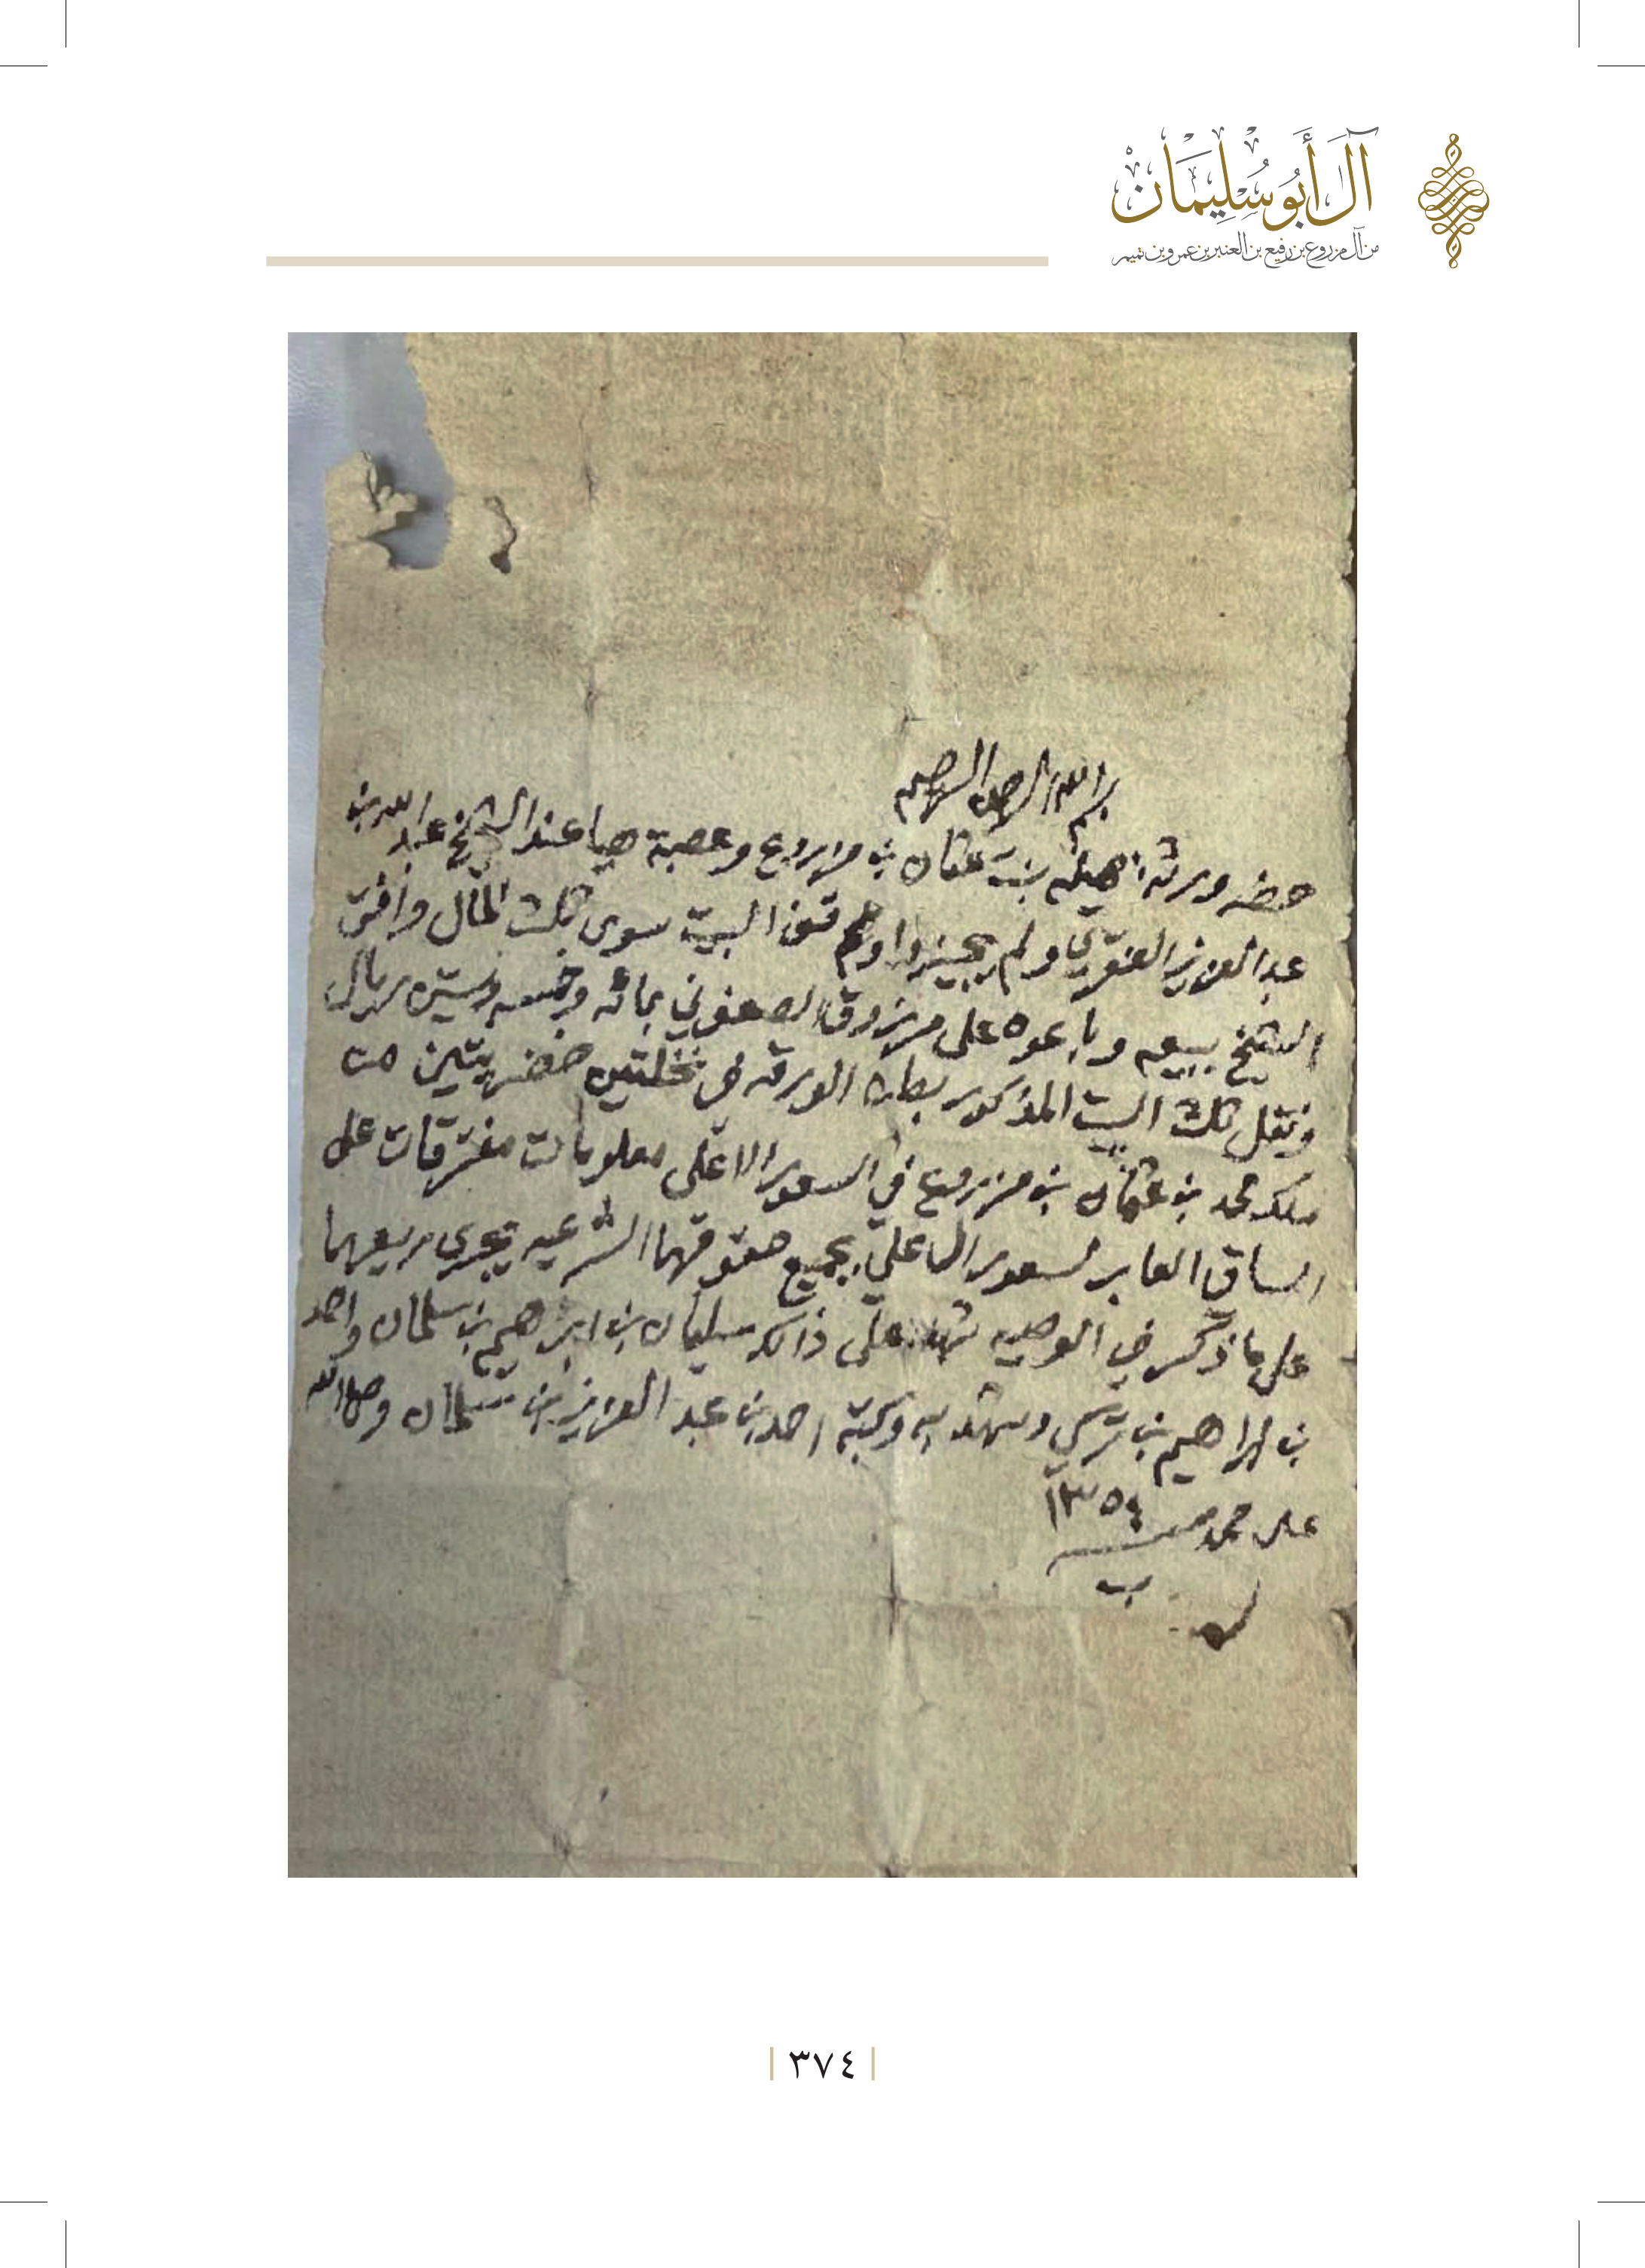 آل أبو سليمان
من آل مزروع بن رفيع بن العنبر بن عمرو بن تميم
بسم الله الرحمن الرحيم
حضر ورثة هيله بنت عثمان بن مزروع وعصبة هيا عند الشيخ عبد الله بن
عبد العزيز العنقري ولم يجيزوا ولم البيت سوى ثلث المال وافق
الشيخ ببيعه وباعوه على مرزوق الصعفوني بمائه وخمسه وستين ريال
ونقل ثلث البيت المذكور بطن الورقه في نخلتين خضريتين من
ملك محمد بن عثمان بن مزروع في السعور الاعلى معلومات مفترقات على
الساقي العابر لسعور الاعلى بجميع حقوقهما الشرعيه يجرى ريعهما
على ما ذكر في الوصيه شهد على ذالك سليمان بن ابرهيم بن سلمان واحمد
بن ابراهيم بن تركي وشهد به وكتبه احمد بن عبد العزيز بن سلمان وصلى الله
على محمد سنة ١٣٥٤
٣٧٤